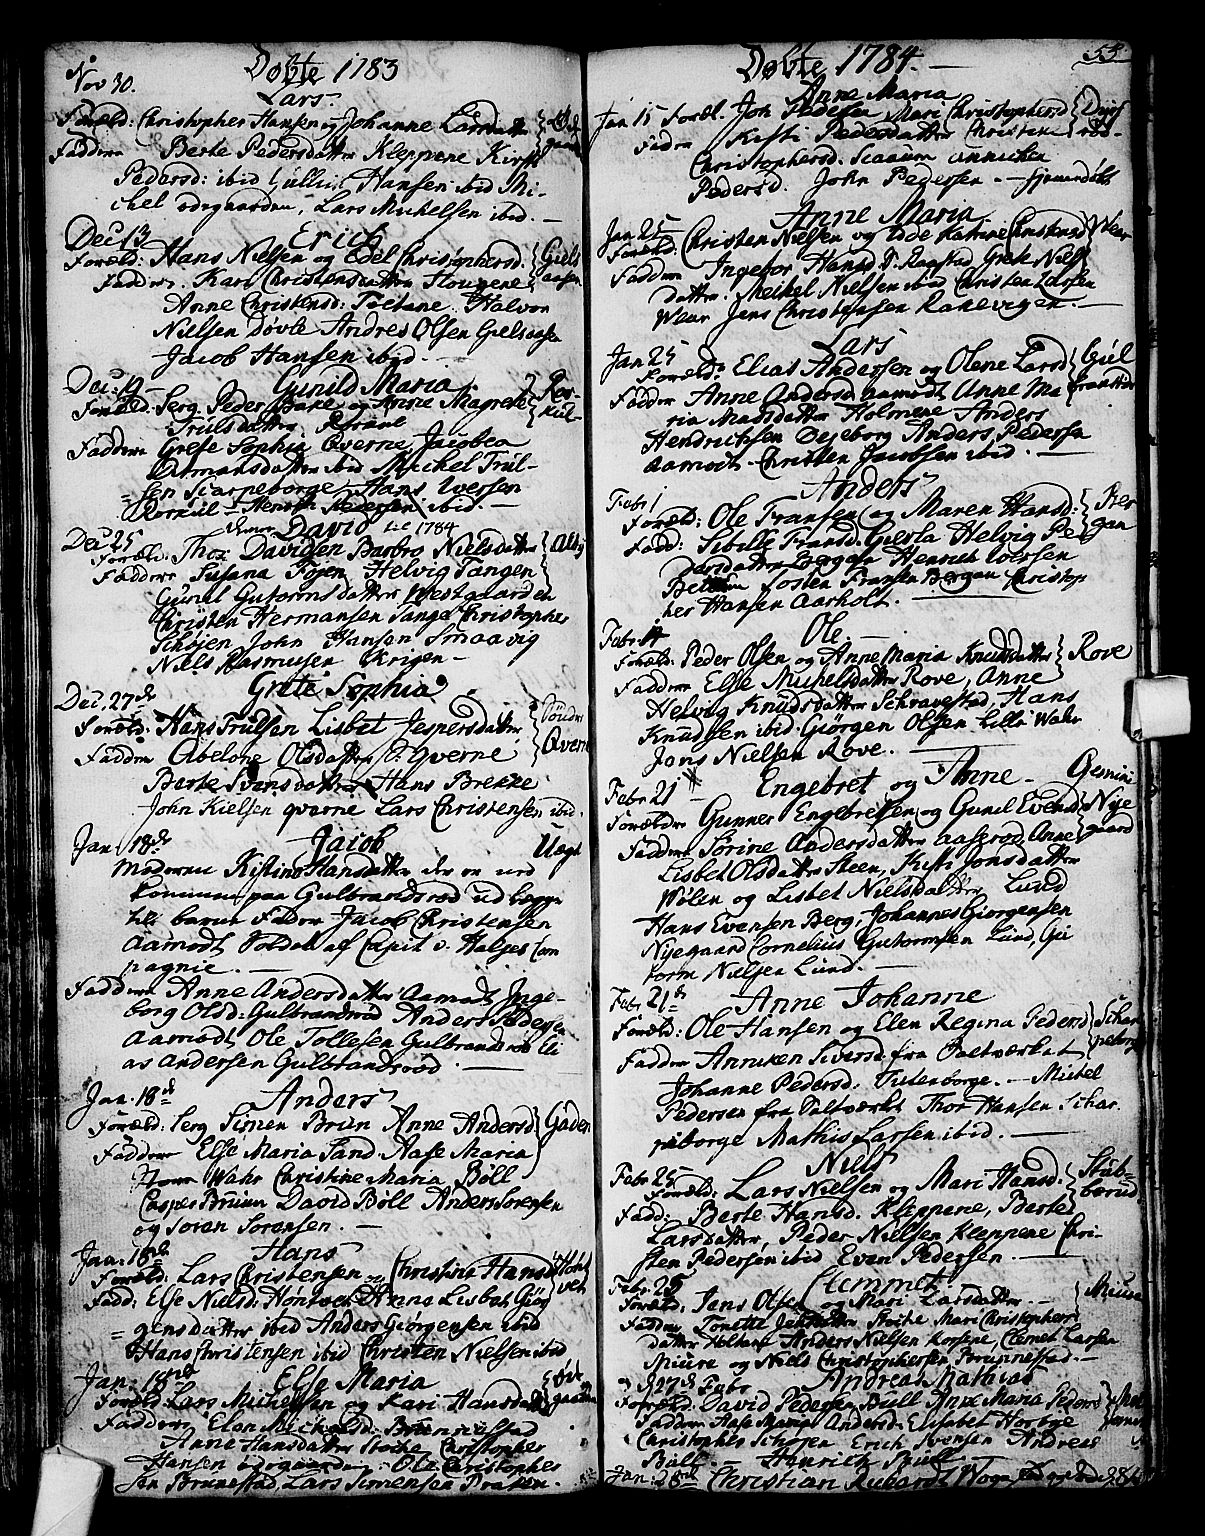 Døbte 1783
Nov 30.
Lars
Foræld: Christopher Hansen og Johanne Larsdatter
Faddere Berte Pedersdatter Kleppene Kirsti
Pedersd: ibid Gullich Hansen ibid Mi-
chel ødegaarden, Lars Michelsen ibid. —
Dec 13
Erich
Foræld: Hans Nielsen og Edel Christophersd: Giels
aasen
Faddere. Kari Christensdatter Hougene
Anne Christensd: Halvor
Nielsen Døvle Andres Olsen Gielsaasen
Jacob Hansen ibid. —
Dec: 19
Gunild Maria
Foræld: Serg. Peder Bake og Anne Magrete
Trulsdatter
Faddere Grete Sophia Qverne, Jacobea
datter ibid Michel Trul-
sen Scarpeborge Hans Iversen
Henrich Pedersen ibid. —
Dec: 25
David
1784
Foræld: Thor Davidsen Barbro Nielsdatter
Faddere Susana Føyen Helvig Tangen
Gunil Gutormsdatter Westgaarden
Christen Hermansen Tange Christopher
Schøjen John Hansen Smaavig
Niels Rasmusen Krigen —
Dec. 27de
Grete Sophia
Foræld: Hans Trulsen Lisbet Jespersdatter Søndre
Qverne
Faddere Abelone Olsdatter Qverne
Berte Svensdatter Hans Brekke
John Kielsen qverne Lars Christensen ibid.
Jan: 18de
Jacob
Uægt
Moderen Kistine Hansdatter der er ned
kommen paa Gulbrandsrød udlægger
til barne Fader Jacob Christensen
Aamodt Soldat af Capit v. Halses Com
pagnie. —
Faddere Anne Andersdatter Aamodt Inge-
borg Olsd: Gulbrandsrød Anders Pedersen
Aamodt Ole Tollesen Gulbrandsrød Eli
as Andersen Gulbrandsrød. —
Jan: 18de
Anders
Foræld: Serg Simen Bruun Anne Andersd Gaden
Faddere Else Maria Sand Aase Maria
Wahr Christine Maria Bøll
Casper Bruun David Bøll Anders Sørensen
og Søren Sørensen. —
Jan: 18de
Hans
Foræld: Lars Christensen og Christine Hansd Hønt
vet
Fadd: Else Nielsd: Høntvet Anne Lisbet Giør
gensdatter ibid Anders Giørgensen ibid
Hans Christensen ibid Christen Nielsen ibid
Jan: 18de
Else Maria
Foræld Lars Michelsen og Kari Hansdatter Øde
gaarden
Faddere Elen Brunnestad
Anne Hansdatter Stoche Christopher
Hansen ødegaarden — Ole Christopher
sen Brunnestad Lars Simensen Præsten.
Døbte 1784. —
55
Anne Maria
Jan 15 Foræl. Jon Pedersen Mari Christophersd
Fadre Kisti Pedersdatter Christine
Christophersd. Annichen
Pedersd. John Pedersen —
Jan 25
Anne Maria
Foræld: Christen Nielsen og Edle Katrine Christensd Wear
Faddere Ingebor Hansd Grete Niels
datter. Meikel Nielsen ibid Christen Larsen
Wear Jens Christensen Rakevigen. —
Jan 25
Lars
Foræld: Elias Andersen og Olene Larsd Gul
brandsrød
Faddere Anne Andersd Aamodt Anne Ma
ria Madsdatter Holmene Anders
Hendrichsen Dejeborg Anders Pedersen
Aamodt Christen Jacobsen ibid. —
Febr 1
Anders
Foræld: Ole Fransen og Maren Hansd: Ber
gan
Fadd: Sibille Fransd: Gierla Helvig Pe
dersdatter Bergan Henrich Iversen
Fransen Bergan Christop
her Hansen Aarholt. —
Febr. 14
Ole. —
Foræld: Peder Olsen og Anne Maria Knudsdatter Rove
Faddere Else Michelsdatter Rove, Anne
Helvig Knudsdatter Schravestad, Hans
Knudsen ibid. Giørgen Olsen Lille Wahr
Jens Nielsen Rove. —
Febr 21 —
Engebret og Anne — Gemini
Forældre Gunner Engebretsen og Gunil Evensd Nye
gaard
Faddere Sørine Andersdatter Aaserød Anne
Lisbet Olsdatter Steen, Kisti Jonsdatter
Wølen og Lisbet Nielsdatter Lund
Hans Evensen Berg Johannes Giørgensen
Nyegaard Cornelius Gutormsen Lund, Gu
torm Nielsen Lund. —
Febr 21de
Anne Johanne
Foræld: Ole Hansen og Elen Regina Pedersd Schar
peborge
Faddere Anniken Siversd: fra Saltværket
Johanne Pedersd: — Michel
Pedersen fra Saltværket Thor Hansen Schar
peborge Mathis Larsen ibid. —
Febr 25
Niels
Foræld: Lars Nielsen og Mari Hansd: Stub
berud
Fadd: Berte Hansd. Kleppene, Berte
Larsdatter, Peder Nielsen Kleppene Chri-
sten Pedersen ibid Even Pedersen. —
Febr: 25
Clemmet
Foræld. Jens Olsen og Mari Larsdatter. —
Faddere Tonette Stoche Mari Christophers
datter Anders Nielsen Clemet Larsen
og Niels Christophersen Brunnestad. —
27de Febr
Andreas Mathias
Foræld: David Pedersen Bull Anne Maria Pedersd
Faddere Aase Maria Andersd: Elisabet
Christopher Schøjen Erich Svensen Andreas
Bull — Henrich Bull —
Jan: 28de Christian